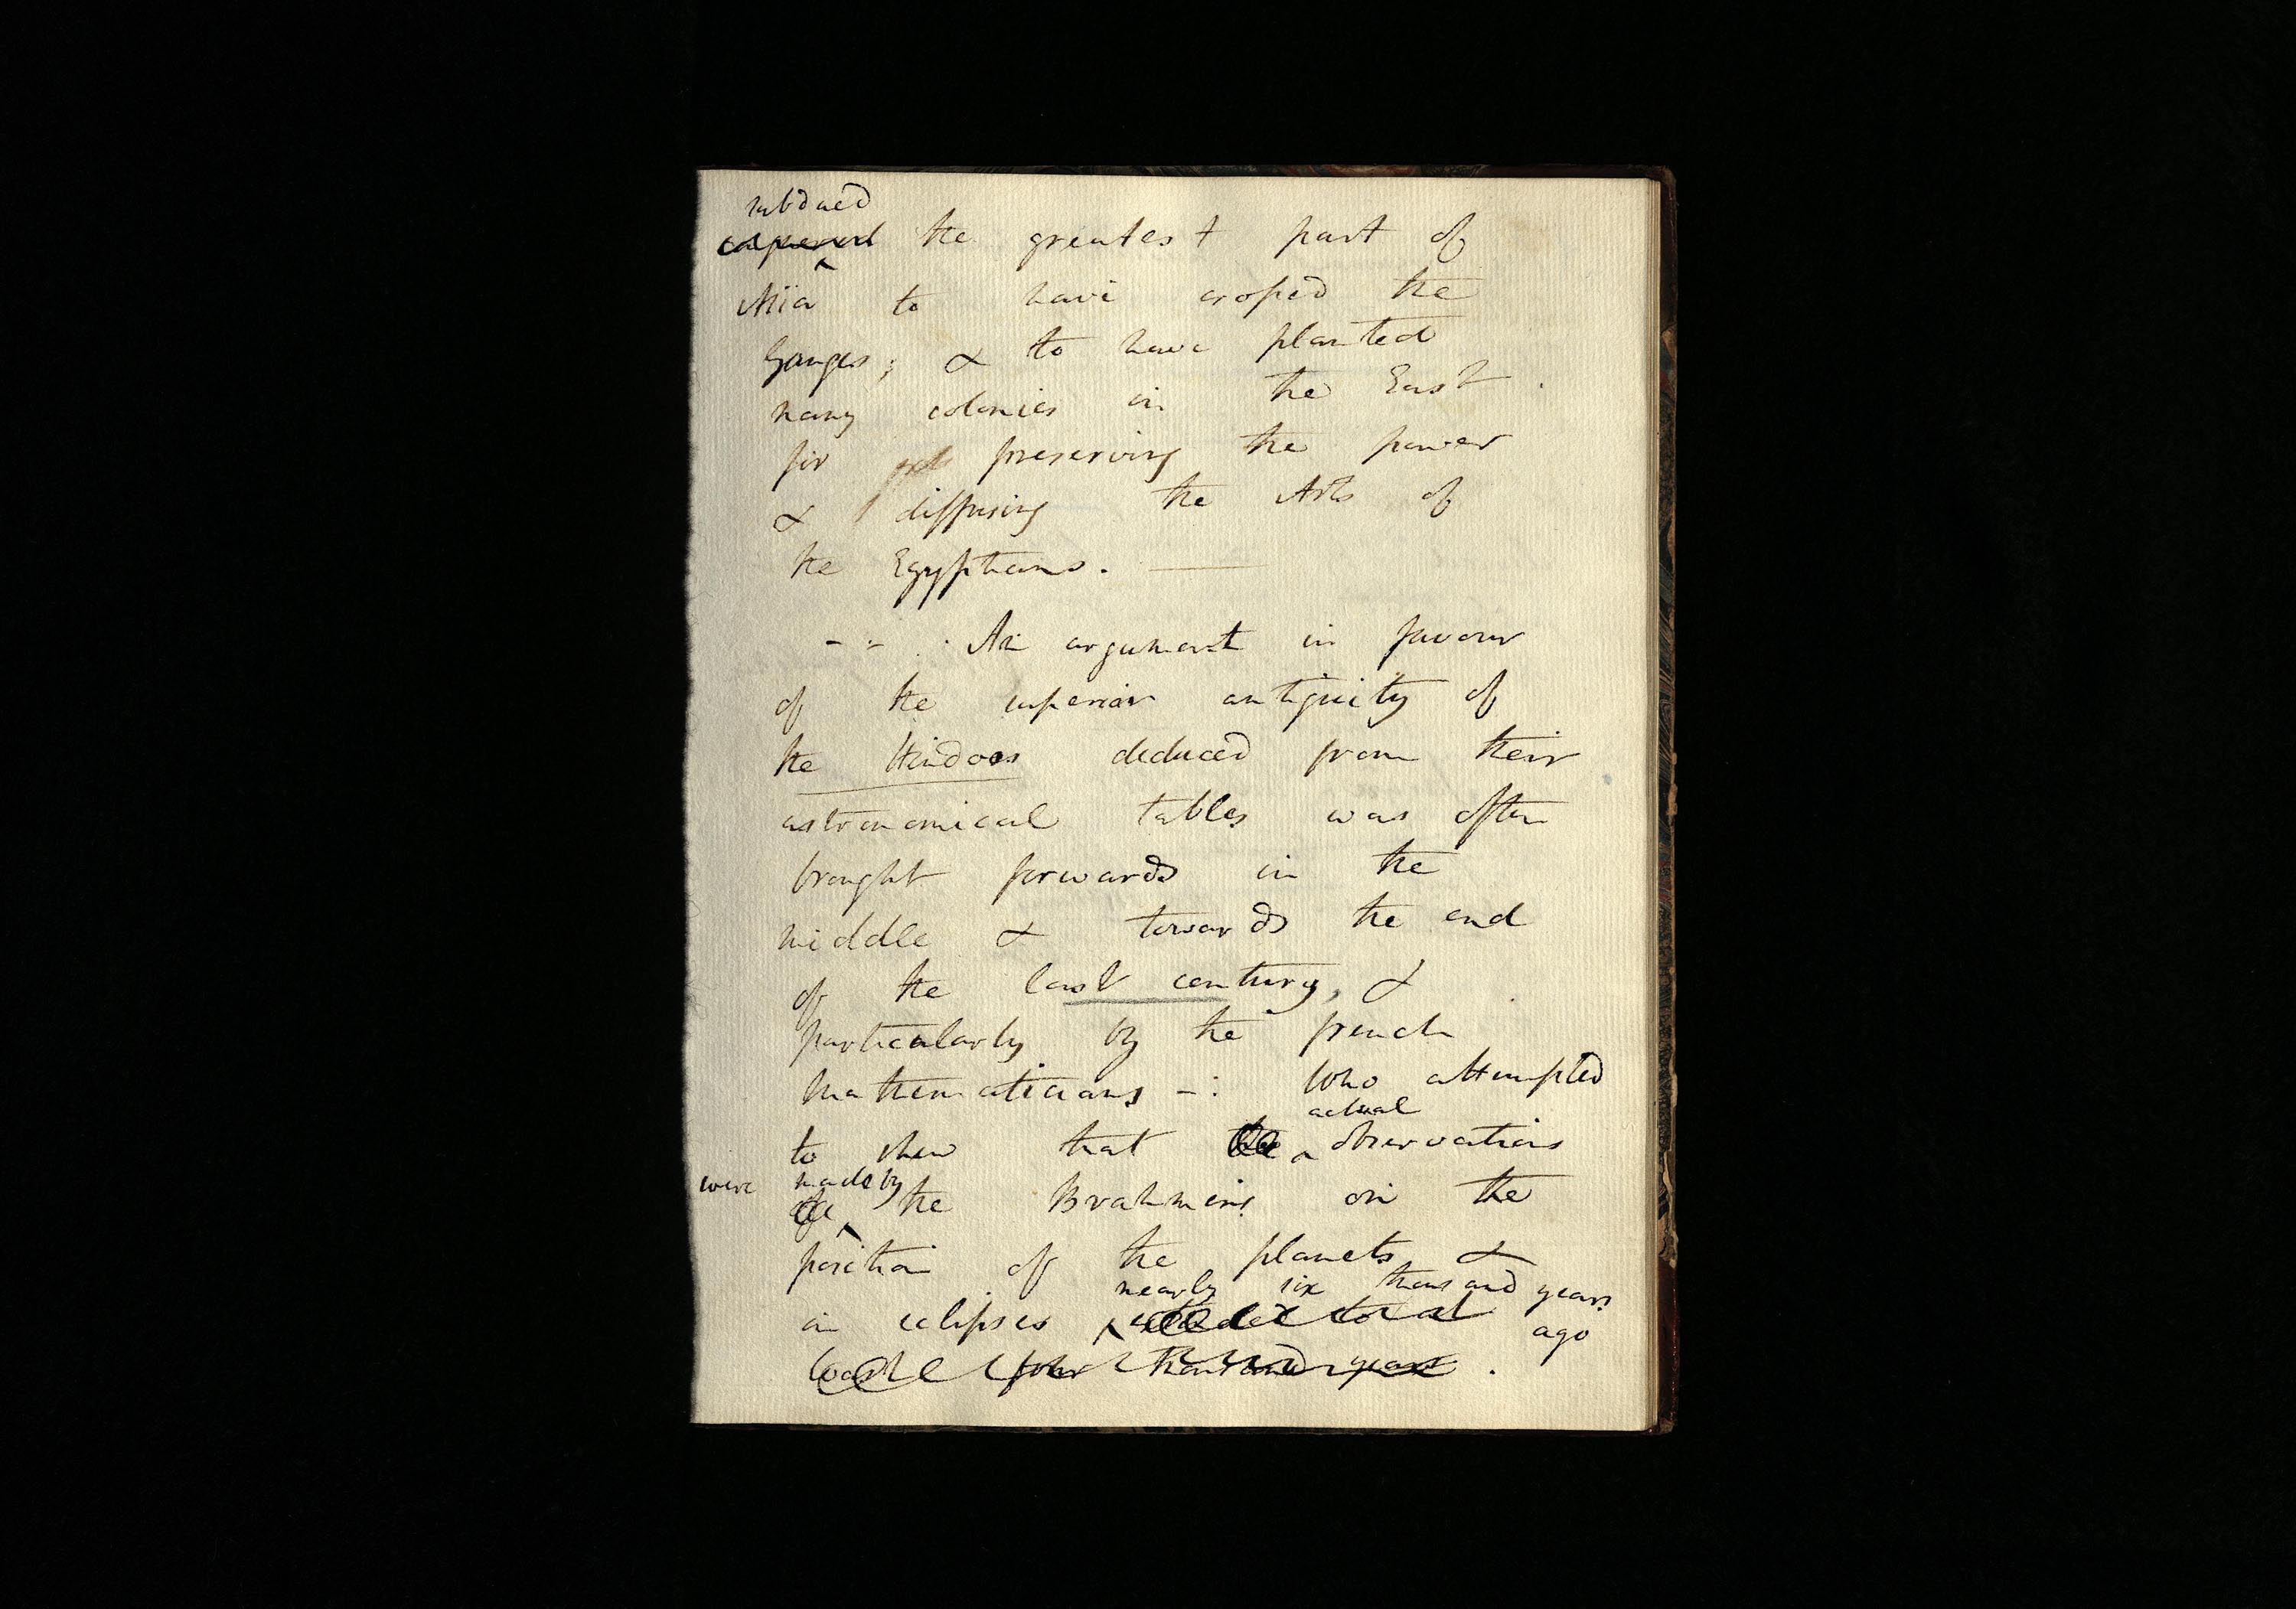 subdued
the greatest part of
Asia to have crossed the
Ganges; & to have planted
many colonies in the East
for preserving the power
& diffusing the Arts of
the Egyptians. —
- : An argument in favour
of the superior antiquity of
the Hindoos deduced from their
astronomical tables was often
brought forwards in the
middle & towards the end
of the last century, &
particularly by the french
Mathematicians -: Who attempted
actual
to shew that observations
were made by
the Brahmins on the
position of the planets &
nearly six thousand years
on eclipses ago
four thousand years .